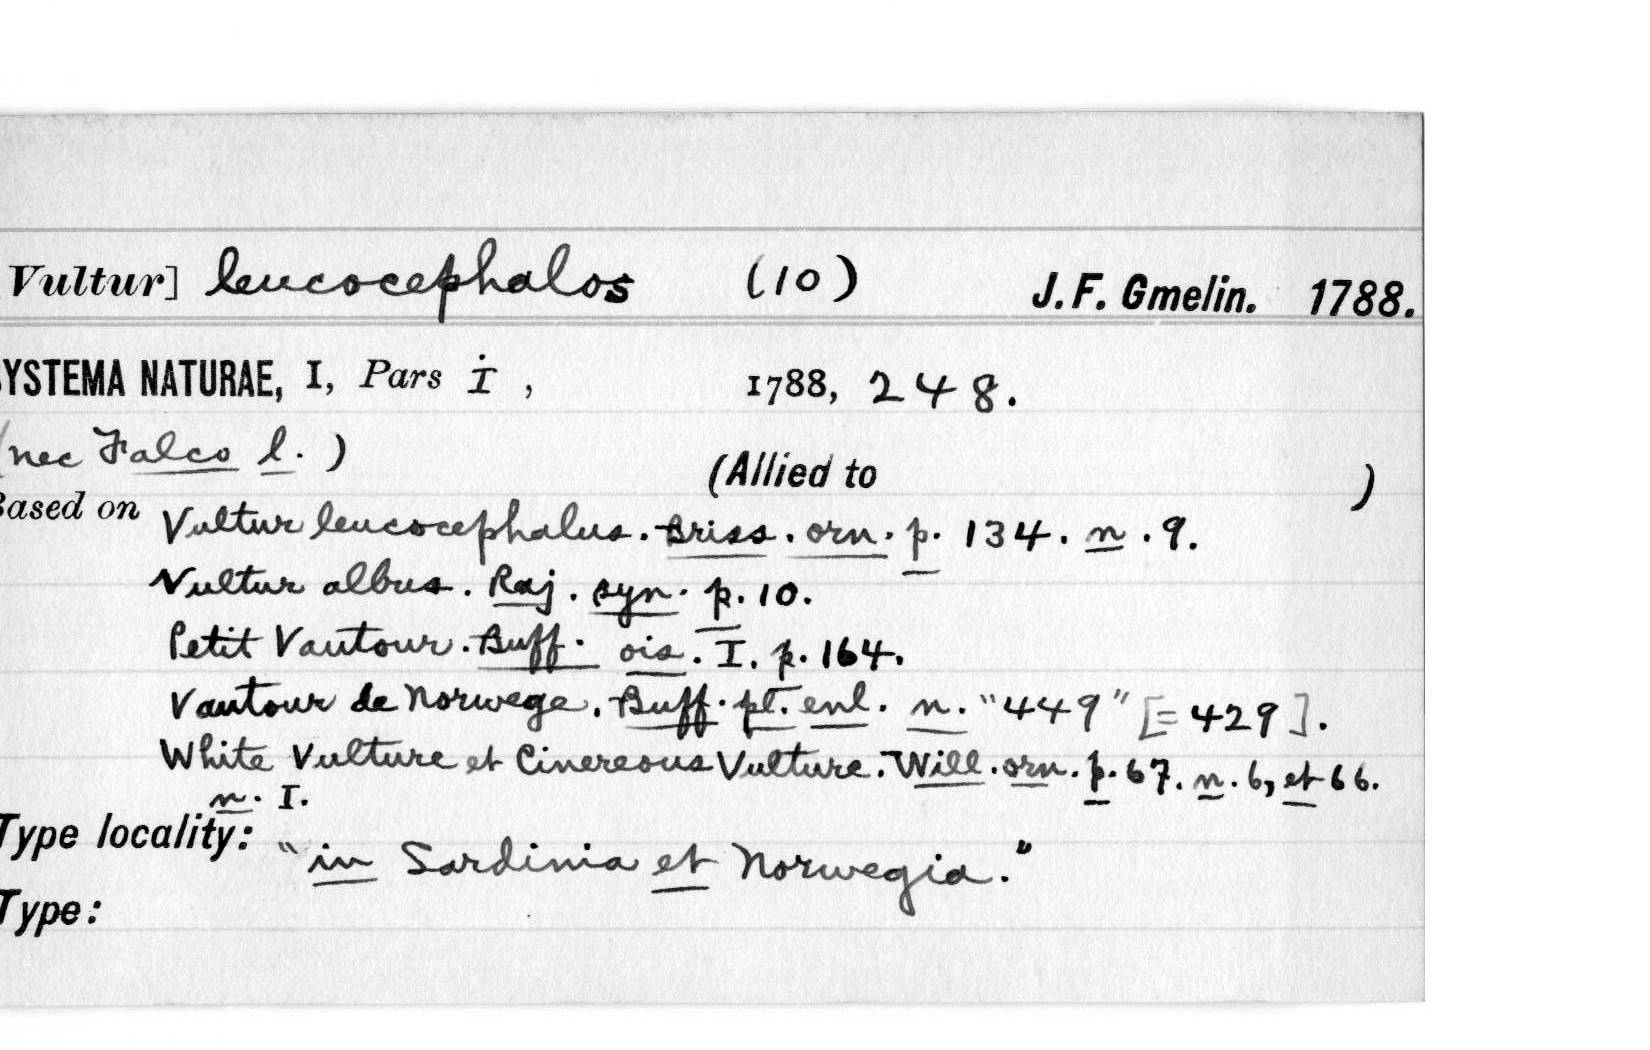 Vultur] leucocephalos (10) J. F. Gmelin. 1788.
YSTEMA NATURAE, I, Pars i, 1788, 248.
(nec Falco l.) (Allied to )
Based on Vultur leucocephalus. Briss. orn. p. 134. n. 9.
Vultur albus. Raj. syn. p. 10.
Petit Vautour. Buff. ois. I. p. 164.
Vautour de Norwege. Buff. pl. enl. n. "449" [= 429].
White Vulture et Cinereous Vulture. Will. orn. p. 67. n. 6, et 66.
n. I.
Type locality: "in Sardinia et Norwegia."
Type: